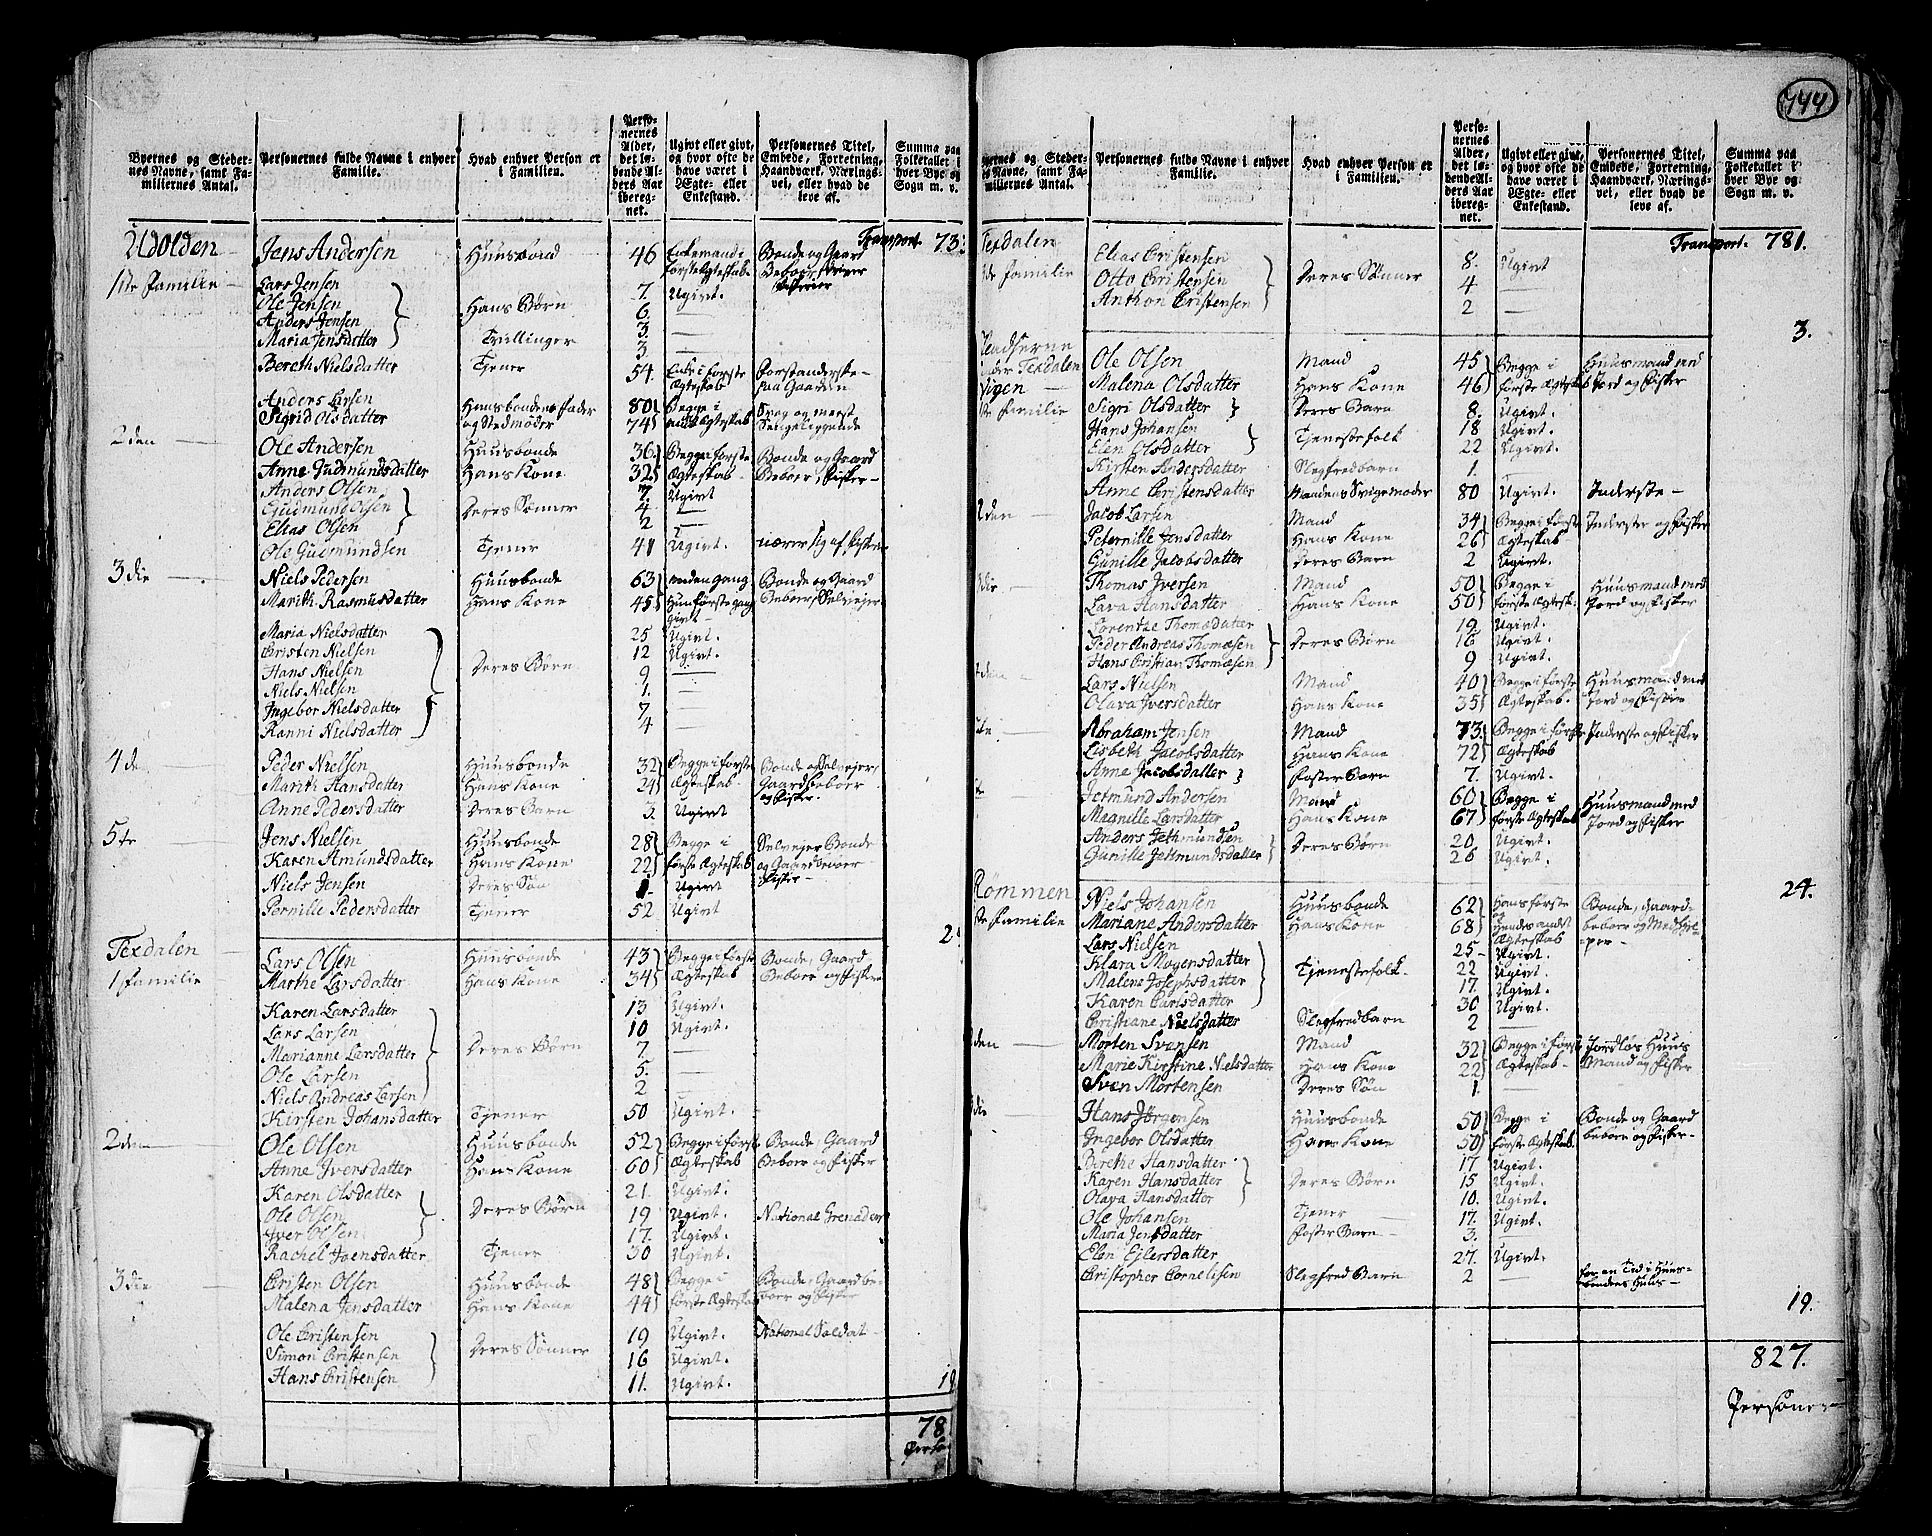 744
Byernes og Steder-
nes Navne, samt Fa-
miliernes Antal.
Personernes fulde Navne i enhver
Familie.
Hvad enhver Person er
i Familien.
Perso-
nernes
Alder,
det lø-
bende Al-
ders Aar
iberegnet.
Ugivt eller givt,
og hvor ofte de
have været i
Ægte- eller
Enkestand.
Personernes Titel,
Embede, Forretning,
Haandværk, Nærings-
vei, eller hvad de
leve af.
Summa paa
Folketallet i
hver Bye og
Sogn m. v.
Transport. 73
Udolden Jens Andersen Huusbond 46 Enkemand i Bonde og Gaard
første Ægteskab Beboer
1ste Familie Lars Jensen 7. Ugivt.
Ole Jensen Hans Børn 6. —
Anders Jensen 3. —
Maria Jensdatter Trillinger 3 —
Bereth Nielsdatter Tjener 54. Enke i første Forstanderske
Ægteskab paa Gaarden
Anders Larsen Huusbondens Fader 80 Begge i Svag og meest
Sigrid Olsdatter og Stedmoder 74 Ægteskab Sengeliggende
2den Ole Andersen Huusbonde 36. Begge i første Bonde og Gaard
Anne Gudmundsdatter Hans Kone 32 Ægteskab Beboer, Fisker
Anders Olsen 7. Ugivt
Gudmund Olsen Deres Sønner 4. —
Elias Olsen 2 —
Ole Gudmundsen Tjener 41 Ugivt. nærer sig af Fisker
3die Niels Pedersen Huusbonde 63 anden gang Bonde og Gaard
Marith Rasmusdatter Hans Kone 45 Hun første gang Beboer, Selvejer
givt
Maria Nielsdatter 25 Ugivt.
Cristen Nielsen 12 Ugivt.
Hans Nielsen Deres Børn 9 —
Niels Nielsen 1. —
Ingebor Nielsdatter 7 —
Ranni Nielsdatter 4 —
4de Peder Nielsen Huusbonde 32 Begge i første Bonde Selvejer,
Marith Hansdatter Hans Kone 24 Ægteskab. Gaardbeboer
og Fisker.
Anne Pedersdatter Deres Barn 3. Ugivt
5te Jens Nielsen Huusbonde 28 Begge i Selvejer Bonde
Karen Amundsdatter Hans Kone 22 første Ægteskab og Gaardbeboer
Fisker
Niels Jensen Deres Søn 1. Ugivt
Pernille Pedersdatter Tjener 52 Ugivt
2
Texdalen Lars Olsen Huusbonde 43 Begge i første Bonde, Gaard
1 Familie Marthe Larsdatter Hans Kone 34 Ægteskab Beboer og Fisker
Karen Larsdatter 13 Ugivt.
Lars Larsen 10 Ugivt.
Marianne Larsdatter Deres Børn 7. —
Ole Larsen 5. —
Niels Andreas Larsen 2
Kirsten Johansdatter Tjener 50 Ugivt.
2den Ole Olsen Huusbonde 52 Begge i første Bonde, Gaard
Anne Iversdatter Hans Kone 60 Ægteskab Beboer og Fisker
Karen Olsdatter 21. Ugivt.
Ole Olsen Deres Børn 19 Ugivt. National Grenader
Iver Olsen 17. Ugivt.
Rachel Joensdatter Tjener 30 Ugivt.
3die Cristen Olsen Huusbonde 48 Begge i Bonde, Gaardbe-
Malena Jensdatter Hans Kone 44 første Ægteskab boer og Fisker
Ole Cristensen 19 Ugivt. National Soldat
Simon Cristensen Deres Sønner 16 Ugivt.
Hans Cristensen 11. Ugivt.
19
78
Perso
Byernes og Steder-
nes Navne, samt Fa-
miliernes Antal.
Personernes fulde Navne i enhver
Familie.
Hvad enhver Person er
i Familien.
Perso-
nernes
Alder,
det lø-
bende Al-
ders Aar
iberegnet.
Ugivt eller givt,
og hvor ofte de
have været i
Ægte- eller
Enkestand.
Personernes Titel,
Embede, Forretning,
Haandværk, Nærings-
vei, eller hvad de
leve af.
Summa paa
Folketallet i
hver Bye og
Sogn m. v.
Transport. 781.
Texdalen Elias Cristensen 8. Ugivt
3die Familie Otto Cristensen Deres Sønner 4 —
Anthon Cristensen 2 —
3.
Pladserne
under Texdalen Ole Olsen Mand 45 Begge i Huusmand med
Vigen Malena Olsdatter Hans Kone 46 første Ægteskab Jord og Fisker
1ste Familie Sigri Olsdatter Deres Barn 8. Ugivt.
Hans Johansen Tjenestefolk 18 Ugivt.
Elen Olsdatter 22 Ugivt.
Kirsten Andersdatter Slegfredbarn 1. —
Anne Cristensdatter Mandens Svigemoder 80 Ugivt. Inderste
2den Jacob Larsen Mand 34 Begge i første Inderste og Fisker
Peternille Jensdatter Hans Kone 26 Ægteskab
Gunille Jacobsdatter Deres Barn 2 Ugivt.
3die Thomas Iversen Mand 50 Begge i Huusmand med
Lava Hansdatter Hans Kone 50 første Ægtesk. Jord og Fisker
Lorentze Thomædatter 19. Ugivt.
Peder Andreas Thomæsen Deres Børn 16 Ugivt.
Hans Cristian Thomæsen 9 Ugivt.
4den Lars Nielsen Mand 40 Begge i første Huusmand med
Olava Iversdatter Hans Kone 35 Ægteskab. Jord og Fiskrie
5te Abraham Jensen Mand 73 Begge i første Inderste og Fisker
Lisbeth Jacobsdatter Hans Kone 72 Ægteskab
Anne Jacobsdatter Foster Barn 7. Ugivt.
6te Jetmund Andersen Mand 60 Begge i Huusmand med
Meanille Larsdatter Hans Kone 67 første Ægteskab Jord og Fisker
Anders Jethmundsen Deres Børn 20. Ugivt.
Gunille Jethmundsdatter 26 Ugivt.
24.
Rømmen Niels Johansen Huusbonde 62 Hans første Bonde, Gaard-
1ste Familie Mariane Andersdatter Hans Kone 68 og Hendes andet beboer og Medhjel-
Ægteskab per
Lars Nielsen 25 Ugivt.
Klara Mogensdatter Tjenestefolk 22 Ugivt.
Malene Josephsdatter 17. Ugivt.
Karen Carlsdatter 30 Ugivt.
Cristiane Nielsdatter Slegfredbarn 2 —
2den Morten Svensen Mand 32 Begge i første Jordløs Huus
Marie Kirstine Nielsdatter Hans Kone 22 Ægteskab Mand og Fisker
Sven Mortensen Deres Søn 1. —
3die Hans Jørgensen Huusbonde 50 Begge i Bonde og Gaard
Ingebor Olsdatter Hans Kone 50 første Ægteskab. beboer og Fisker
Berethe Hansdatter 17 Ugivt.
Karen Hansdatter Deres Børn 15 Ugivt.
Olava Hansdatter 10. Ugivt.
Ole Johansen Tjener 17. Ugivt.
Maria Jensdatter Foster Barn 3. —
Elen Ejlersdatter 27. Ugivt.
Christopher Cornelisen Slegfred Barn 2 — for en Tid i Huus-
bondens Huus
19.
827.
Personer